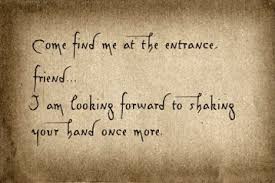 Come find me at the entrance,
friend...
I am looking forward to shaking
your hand once more.